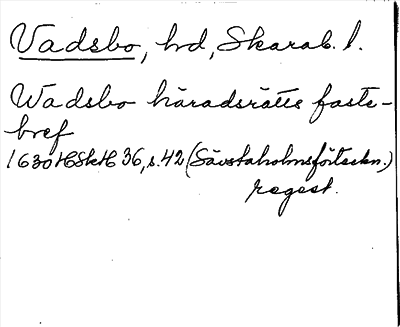 Vadsbo, hd, Skarab. l.
Wadsbo häradsrätts faste-
bref
1630 HSkH 36, s. 42 (Sävstaholmsförteckn.)
regest.